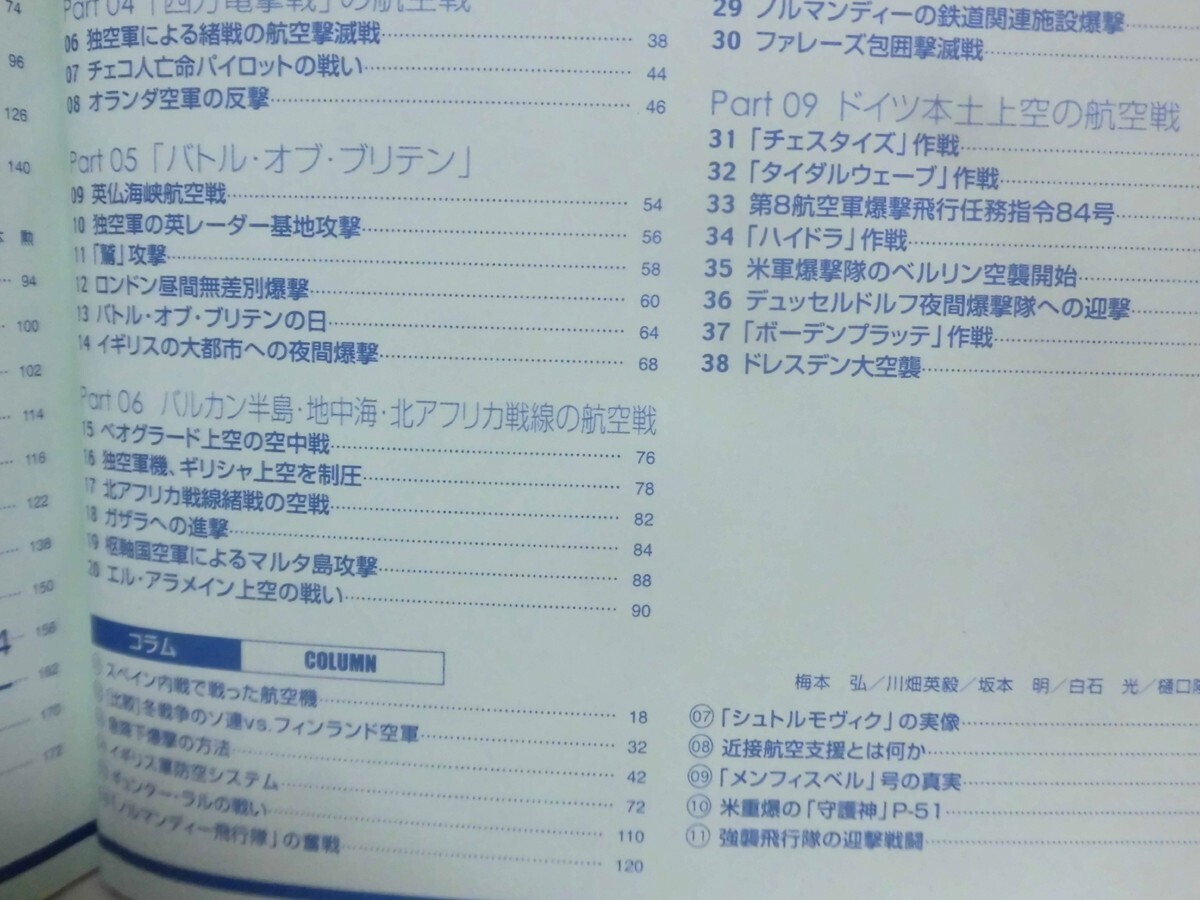 74
96
126
140
本 勲
94
100
102
114
116
122
138
150
156
162
170
172
Part 04「西方電撃戦」の航空戦
06 独空軍による緒戦の航空撃滅戦 38
07 チェコ人亡命パイロットの戦い 44
08 オランダ空軍の反撃 46
Part 05「バトル・オブ・ブリテン」
09 英仏海峡航空戦 54
10 独空軍の英レーダー基地攻撃 56
11「鷲」攻撃 58
12 ロンドン昼間無差別爆撃 60
13 バトル・オブ・ブリテンの日 64
14 イギリスの大都市への夜間爆撃 68
Part 06 バルカン半島・地中海・北アフリカ戦線の航空戦
15 ベオグラード上空の空中戦 76
16 独空軍機、ギリシャ上空を制圧 78
17 北アフリカ戦線緒戦の空戦 82
18 ガザラへの進撃 84
19 枢軸国空軍によるマルタ島攻撃 88
20 エル・アラメイン上空の戦い 90
コラム COLUMN
スペイン内戦で戦った航空機 18
[比較]冬戦争のソ連vs.フィンランド空軍 32
急降下爆撃の方法 42
イギリス軍防空システム 72
ギュンター・ラルの戦い 110
「ノルマンディー飛行隊」の奮戦 120
29 ノルマンディーの鉄道関連施設爆撃
30 ファレーズ包囲撃滅戦
Part 09 ドイツ本土上空の航空戦
31「チェスタイズ」作戦
32「タイダルウェーブ」作戦
33 第8航空軍爆撃飛行任務指令84号
34「ハイドラ」作戦
35 米軍爆撃隊のベルリン空襲開始
36 デュッセルドルフ夜間爆撃隊への迎撃
37「ボーデンプラッテ」作戦
38 ドレスデン大空襲
梅本 弘／川畑英毅／坂本 明／白石 光／樋口隆
⑦「シュトルモヴィク」の実像
⑧ 近接航空支援とは何か
⑨「メンフィスベル」号の真実
⑩ 米重爆の「守護神」P-51
⑪ 強襲飛行隊の迎撃戦闘